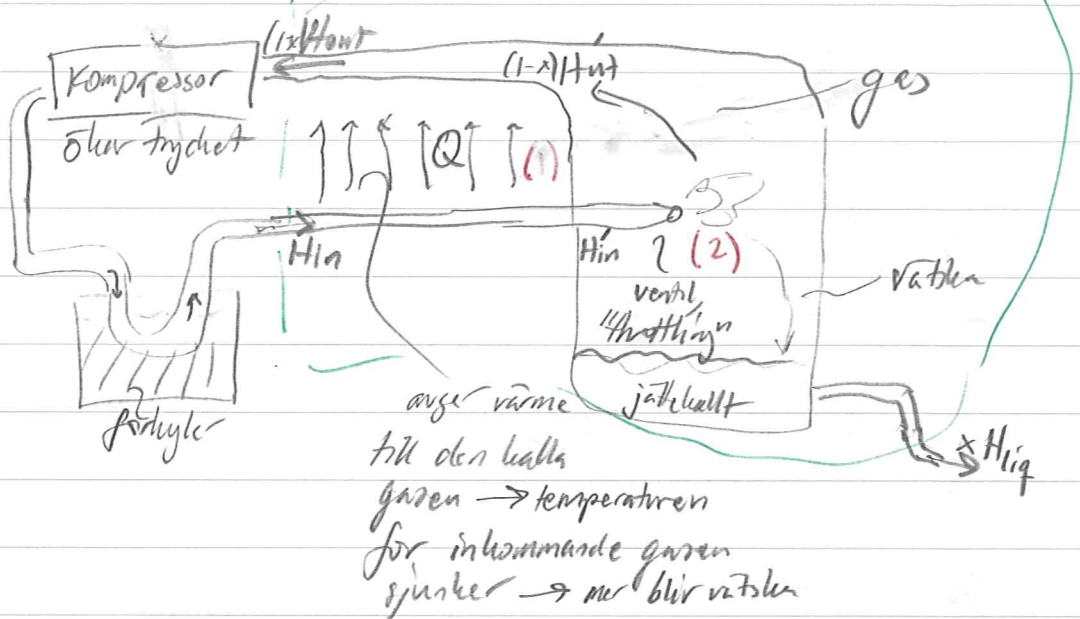 (1-x)Hout
Kompressor
(1-x)Hut
gas
ökar trycket
Q
(1)
Hin
Hin
(2)
ventil,
"throttling"
vätska
jättekallt
förkyler
x Hliq
avger värme
till den kalla
gasen → temperaturen
för inkommande gasen
sjunker → mer blir vätska